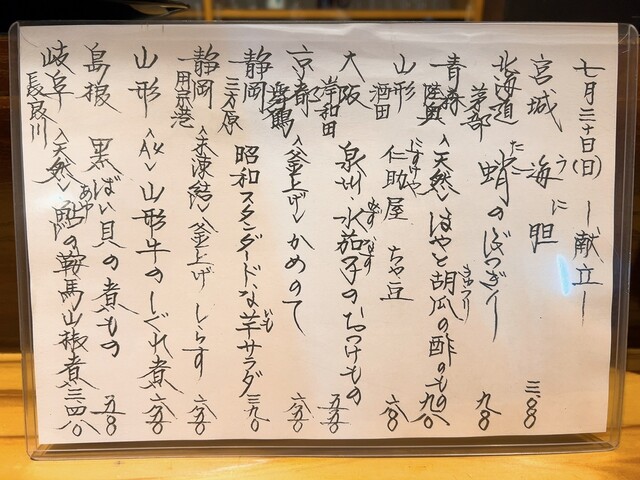 七月三十日(日) ー献立ー
宮城 海胆 うに 三、八〇〇
北海道 茅部 蛸のぶつぎり たこ 九八〇
青森 陸奥 〈天然〉ほやと胡瓜の酢のもの きゅうり 九八〇
山形 酒田 仁助屋 にすけや ちゃ豆 六八〇
大阪 岸和田 泉州・水茄子のおつけもの みずなす 五五〇
京都 舞鶴 〈釜上げ〉かめのて 六五〇
静岡 三方原 昭和スタンダードな芋サラダ いも 三九〇
静岡 用宗港 〈釜上げ〉しらす 六五〇
山形 〈A4〉山形牛のしぐれ煮 六五〇
島根 黒ばい貝の煮もの 五八〇
岐阜 長良川 〈天然〉鮎の鞍馬山椒煮 あゆ 三、四八〇